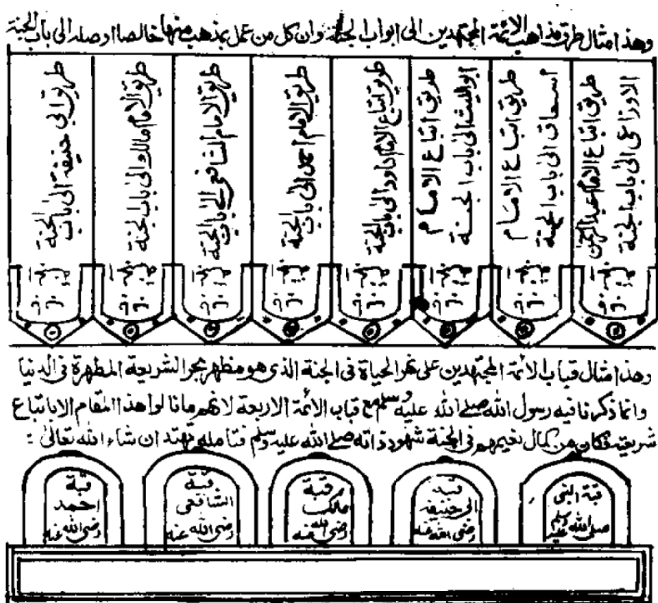 وهذا مثال طرق مذاهب الائمة المجتهدين الى ابواب الجنة وان كل من عمل بمذهب منها خالصا اوصله الى باب الجنة
طريق اتباع الامام عبد الرحمن
الاوزاعى الى باب الجنة
طريق اتباع الامام
اسحاق الى باب الجنة
طريق اتباع الامام
ابو الليث الى باب الجنة
طريق اتباع الامام داود الى باب الجنة
طريق الامام احمد الى باب الجنة
طريق الامام الشافعى الى باب الجنة
طريق الامام مالك الى باب الجنة
طريق ابى حنيفة الى باب الجنة
وهذا مثال قباب الائمة المجتهدين على نهر الحياة فى الجنة الذى هو مظهر بحر الشريعة المطهرة فى الدنيا
وانما ذكرنا فيه رسول الله صلى الله عليه وسلم مع قباب الائمة الاربعة لانهم ما نالوا هذا المقام الا باتباع
شريعته فكان من كمال نعيمهم فى الجنة شهود ذاته صلى الله عليه وسلم فتامله تهتد ان شاء الله تعالى :
قبة النبى
صلى الله عليه وسلم
قبة
ابى حنيفة
رضى الله عنه
قبة
مالك
رضى الله عنه
قبة
الشافعى
رضى الله عنه
قبة
احمد
رضى الله عنه